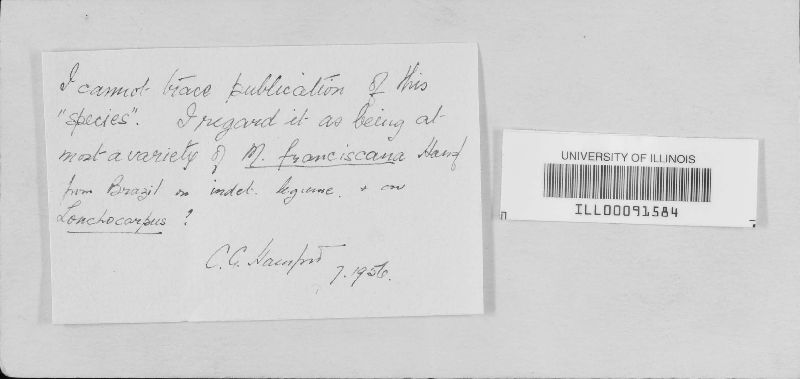 I cannot trace publication of this
"species". I regard it as being at
most a variety of M. franciscana Hansf
from Brazil on indet. legume. + on
Lonchocarpus ?
C.G. Hansford
7.1956.
UNIVERSITY OF ILLINOIS
ILL00091584